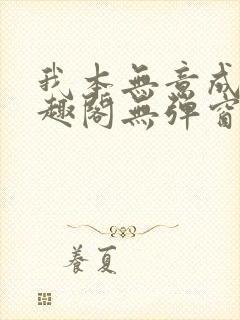 我本無意成
趣閣無彈窗
養夏